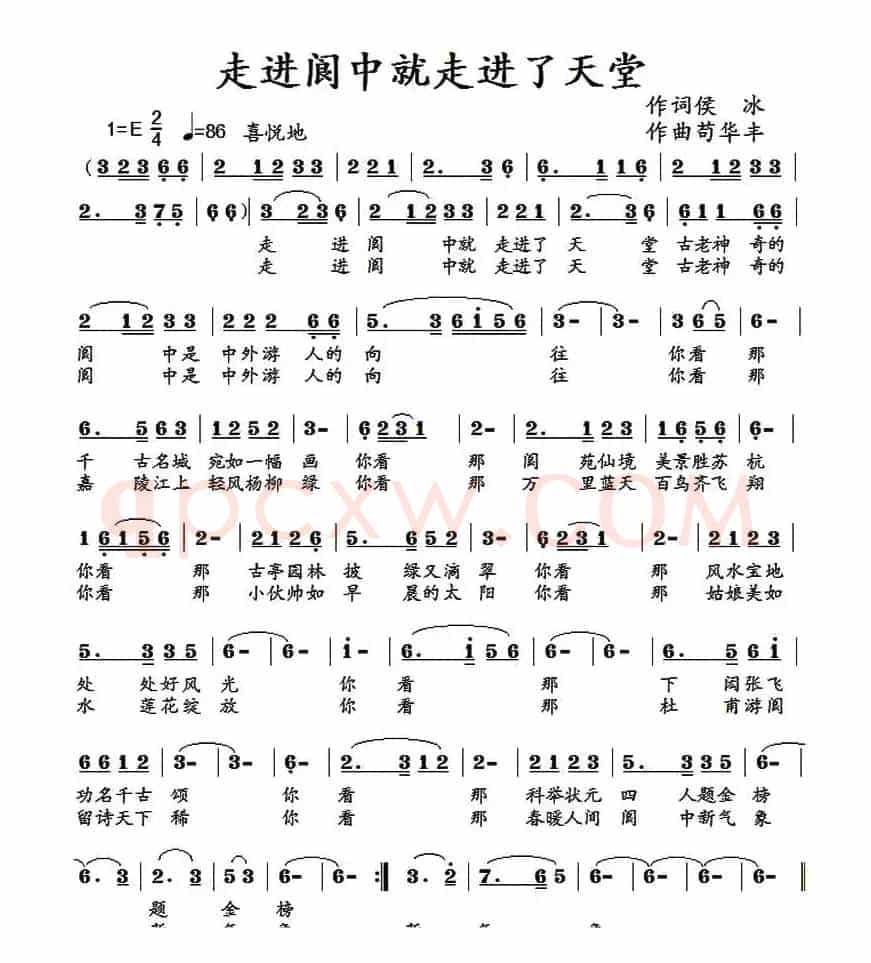 走进阆中就走进了天堂
作词侯 冰
1=E 2/4 ♩=86 喜悦地
作曲苟华丰
(3 2 3 6 6 | 2 1 2 3 3 | 2 2 1 | 2. 3 6 | 6. 1 1 6 | 2 1 2 3 3 |
2. 3 7 5 | 6 6) | 3 2 3 6 | 2 1 2 3 3 | 2 2 1 | 2. 3 6 | 6 1 1 6 6 |
走 进 阆 中就 走进了 天 堂 古老神 奇的
走 进 阆 中就 走进了 天 堂 古老神 奇的
2 1 2 3 3 | 2 2 2 6 6 | 5. 3 6 i 5 6 | 3 - | 3 - | 3 6 5 | 6 - |
阆 中是 中外游 人的 向 往 你看 那
阆 中是 中外游 人的 向 往 你看 那
6. 5 6 3 | 1 2 5 2 | 3 - | 6 2 3 1 | 2 - | 2. 1 2 3 | 1 6 5 6 | 6 - |
千 古名城 宛如一幅 画 你看 那 阆 苑仙境 美景胜苏 杭
嘉 陵江上 轻风杨柳 绿 你看 那 万 里蓝天 百鸟齐飞 翔
1 6 1 5 6 | 2 - | 2 1 2 6 | 5. 6 5 2 | 3 - | 6 2 3 1 | 2 - | 2 1 2 3 |
你看 那 古亭园林 披 绿又滴 翠 你看 那 风水宝地
你看 那 小伙帅如 早 晨的太 阳 你看 那 姑娘美如
5. 3 3 5 | 6 - | 6 - | i - | 6. i 5 6 | 6 - | 6. 5 6 i |
处 处好风 光 你 看 那 下 闾张飞
水 莲花绽 放 你 看 那 杜 甫游阆
6 6 1 2 | 3 - | 3 - | 6 - | 2. 3 1 2 | 2 - | 2 1 2 3 | 5. 3 3 5 | 6 - |
功名千古 颂 你 看 那 科举状元 四 人题金 榜
留诗天下 稀 你 看 那 春暖人间 阆 中新气 象
6. 3 | 2. 3 | 5 3 | 6 - | 6 - :| 3. 2 | 7. 6 5 | 6 - | 6 - | 6 - | 6 - ‖
题 金 榜
qpcxw.COM